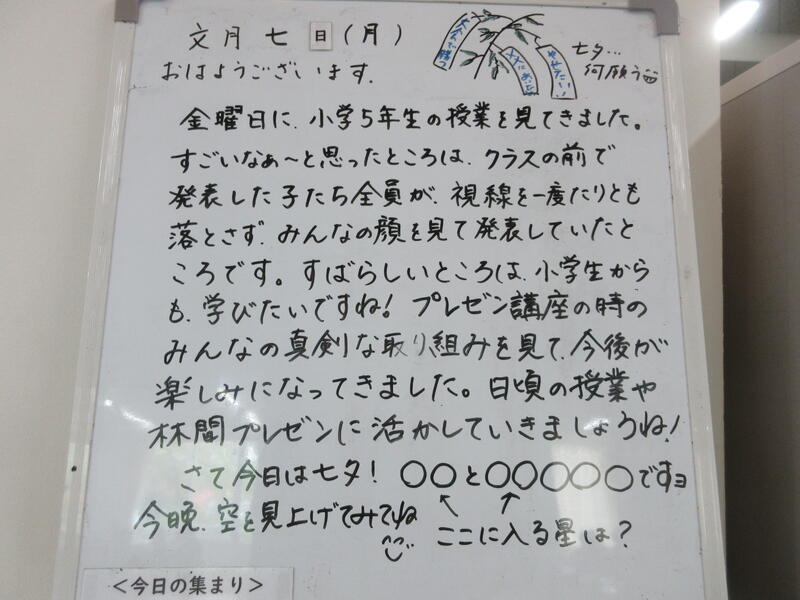 文月七日(月)
七夕…
何願う
大会で勝つ
やせたい!
おはようございます.
金曜日に、小学5年生の授業を見てきました。
すごいなぁ~と思ったところは、クラスの前で
発表した子たち全員が、視線を一度たりとも
落とさず、みんなの顔を見て発表していたと
ころです。すばらしいところは、小学生から
も、学びたいですね!プレゼン講座の時の
みんなの真剣な取り組みを見て、今後が
楽しみになってきました。日頃の授業や
林間プレゼンに活かしていきましょうね!
さて今日は七夕!〇〇と〇〇〇〇〇ですョ
今晩、空を見上げてみてね
ここに入る星は?
<今日の集まり>